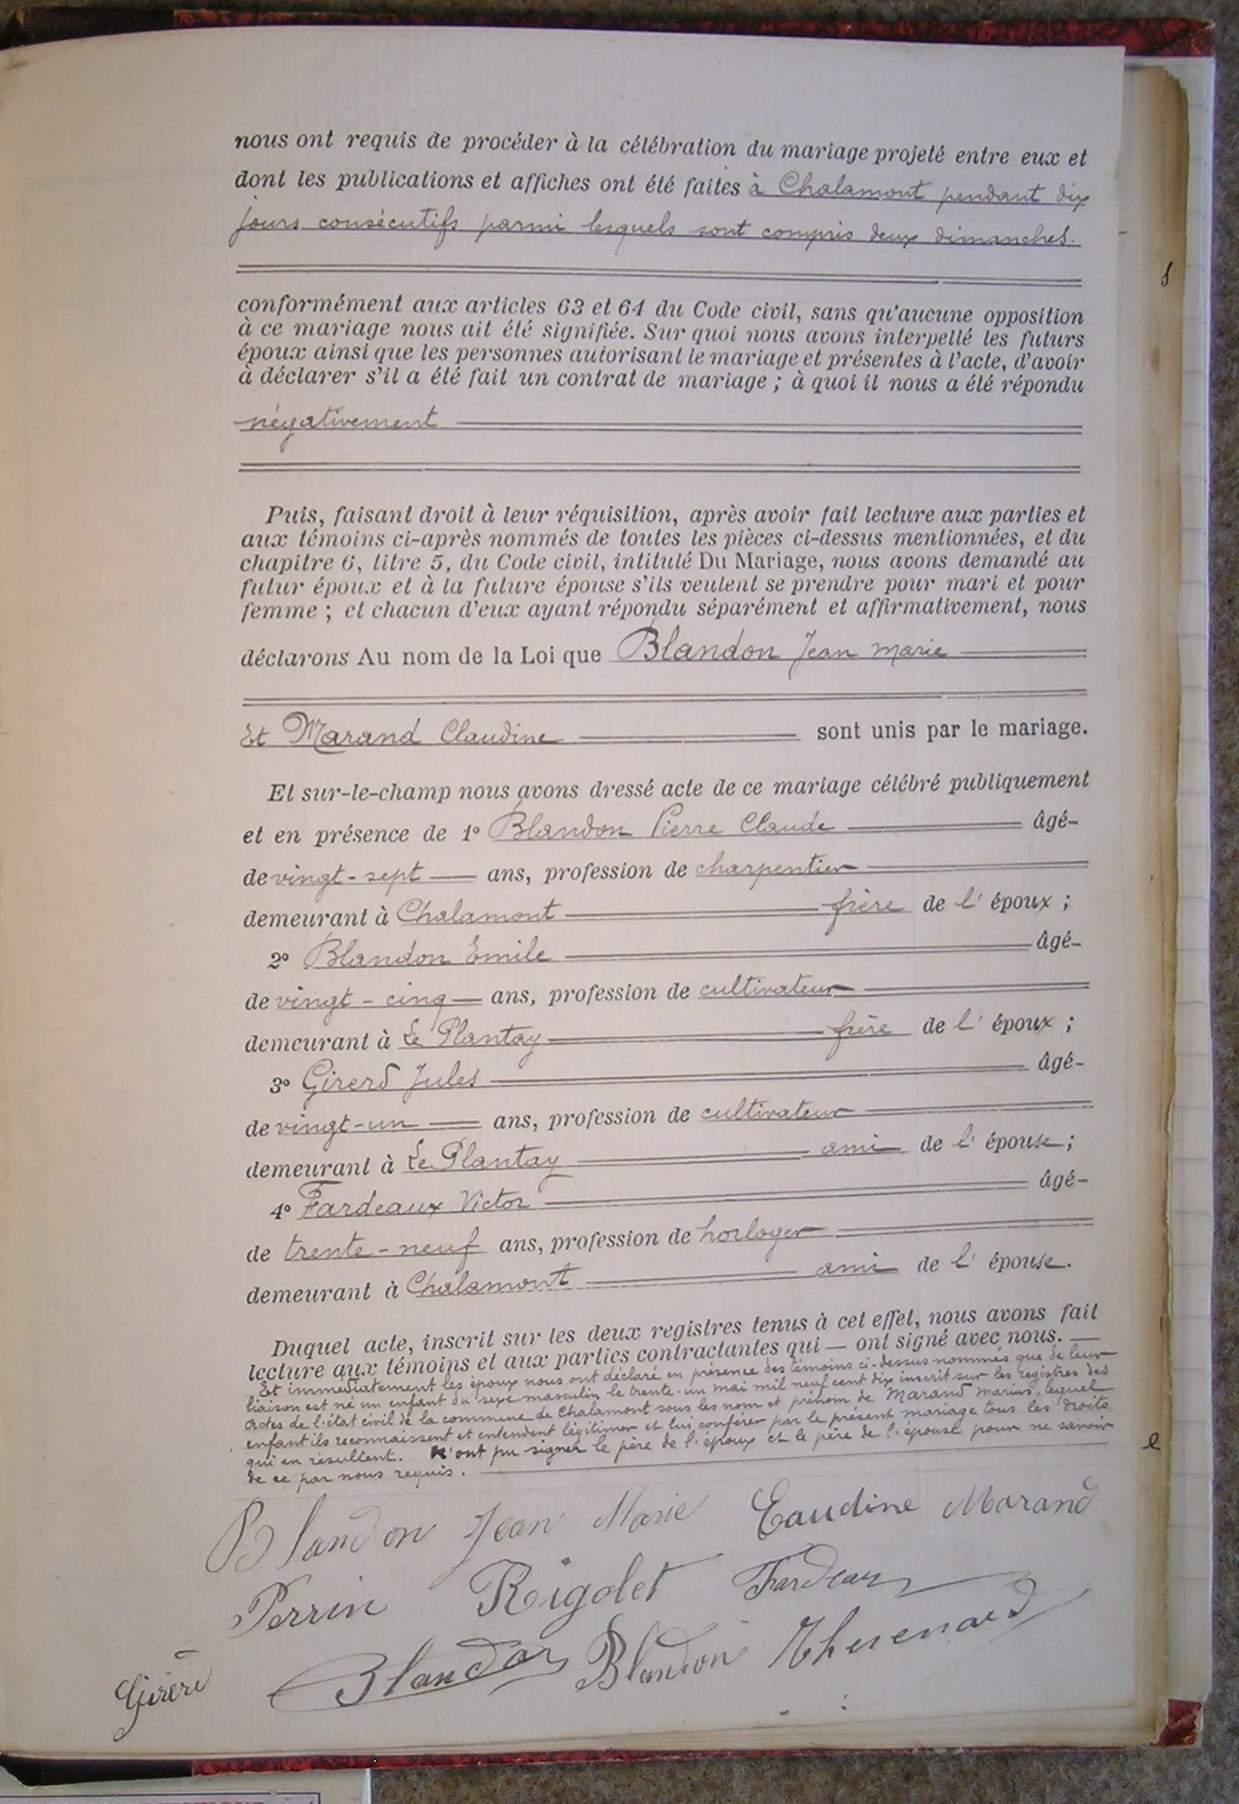 nous ont requis de procéder à la célébration du mariage projeté entre eux et
dont les publications et affiches ont été faites à Chalamont pendant dix
jours consécutifs parmi lesquels sont compris deux dimanches.
conformément aux articles 63 et 64 du Code civil, sans qu'aucune opposition
à ce mariage nous ait été signifiée. Sur quoi nous avons interpellé les futurs
époux ainsi que les personnes autorisant le mariage et présentes à l'acte, d'avoir
à déclarer s'il a été fait un contrat de mariage ; à quoi il nous a été répondu
négativement
Puis, faisant droit à leur réquisition, après avoir fait lecture aux parties et
aux témoins ci-après nommés de toutes les pièces ci-dessus mentionnées, et du
chapitre 6, titre 5, du Code civil, intitulé Du Mariage, nous avons demandé au
futur époux et à la future épouse s'ils veulent se prendre pour mari et pour
femme ; et chacun d'eux ayant répondu séparément et affirmativement, nous
déclarons Au nom de la Loi que Blandon Jean Marie
Et Marand Claudine sont unis par le mariage.
Et sur-le-champ nous avons dressé acte de ce mariage célébré publiquement
et en présence de 1° Blandon Pierre Claude âgé-
de vingt-sept ans, profession de charpentier
demeurant à Chalamont frère de l'époux ;
2° Blandon Emile âgé-
de vingt-cinq ans, profession de cultivateur
demeurant à Le Plantay frère de l'époux ;
3° Girerd Jules âgé-
de vingt-un ans, profession de cultivateur
demeurant à Le Plantay ami de l'épouse ;
4° Fardeaux Victor âgé-
de trente-neuf ans, profession de horloger
demeurant à Chalamont ami de l'épouse.
Duquel acte, inscrit sur les deux registres tenus à cet effet, nous avons fait
lecture aux témoins et aux parties contractantes qui — ont signé avec nous. —
Et immédiatement les époux nous ont déclaré en présence des témoins ci-dessus nommés que de leur
liaison est né un enfant du sexe masculin le trente-un mai mil neuf cent dix inscrit sur les registres des
actes de l'état civil de la commune de Chalamont sous les nom et prénom de Marand Marius, lequel
enfant ils reconnaissent et entendent légitimer et lui conférer par le présent mariage tous les droits
qui en résultent. N'ont pu signer le père de l'époux et le père de l'épouse pour ne savoir
de ce par nous requis.
Blandon Jean Marie Caudine Marand
Perrin Rigolet Fardeaux
Blandon Blandon Thevenard